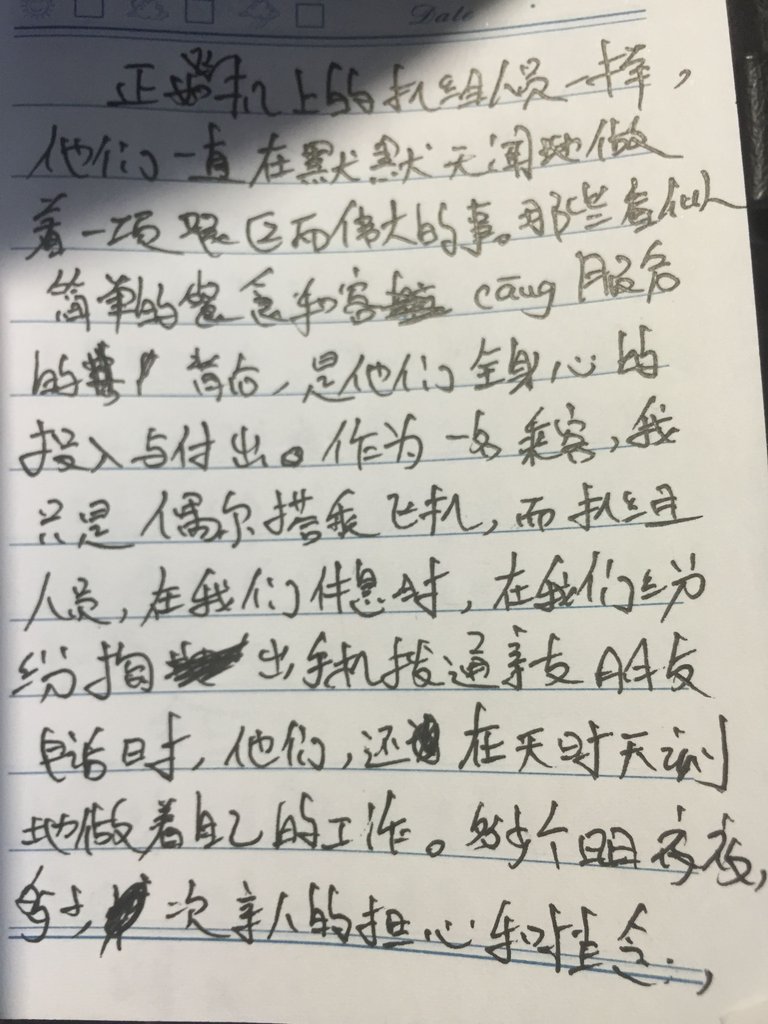 Date
正如飞机上的机组人员一样，
他们一直在默默无闻地做
着一项 而伟大的事。那些看似
简单的餐 和客 cāng 服务
的 背后，是他们全身心的
投入与付出。作为一名乘客，我
只是偶尔搭乘飞机，而机组
人员，在我们休息时，在我们纷
纷掏 出手机拨通亲友朋友
电话时，他们，还 在无时无刻
地做着自己的工作。多少个日日夜夜，
多少 次亲人的担心和挂念，